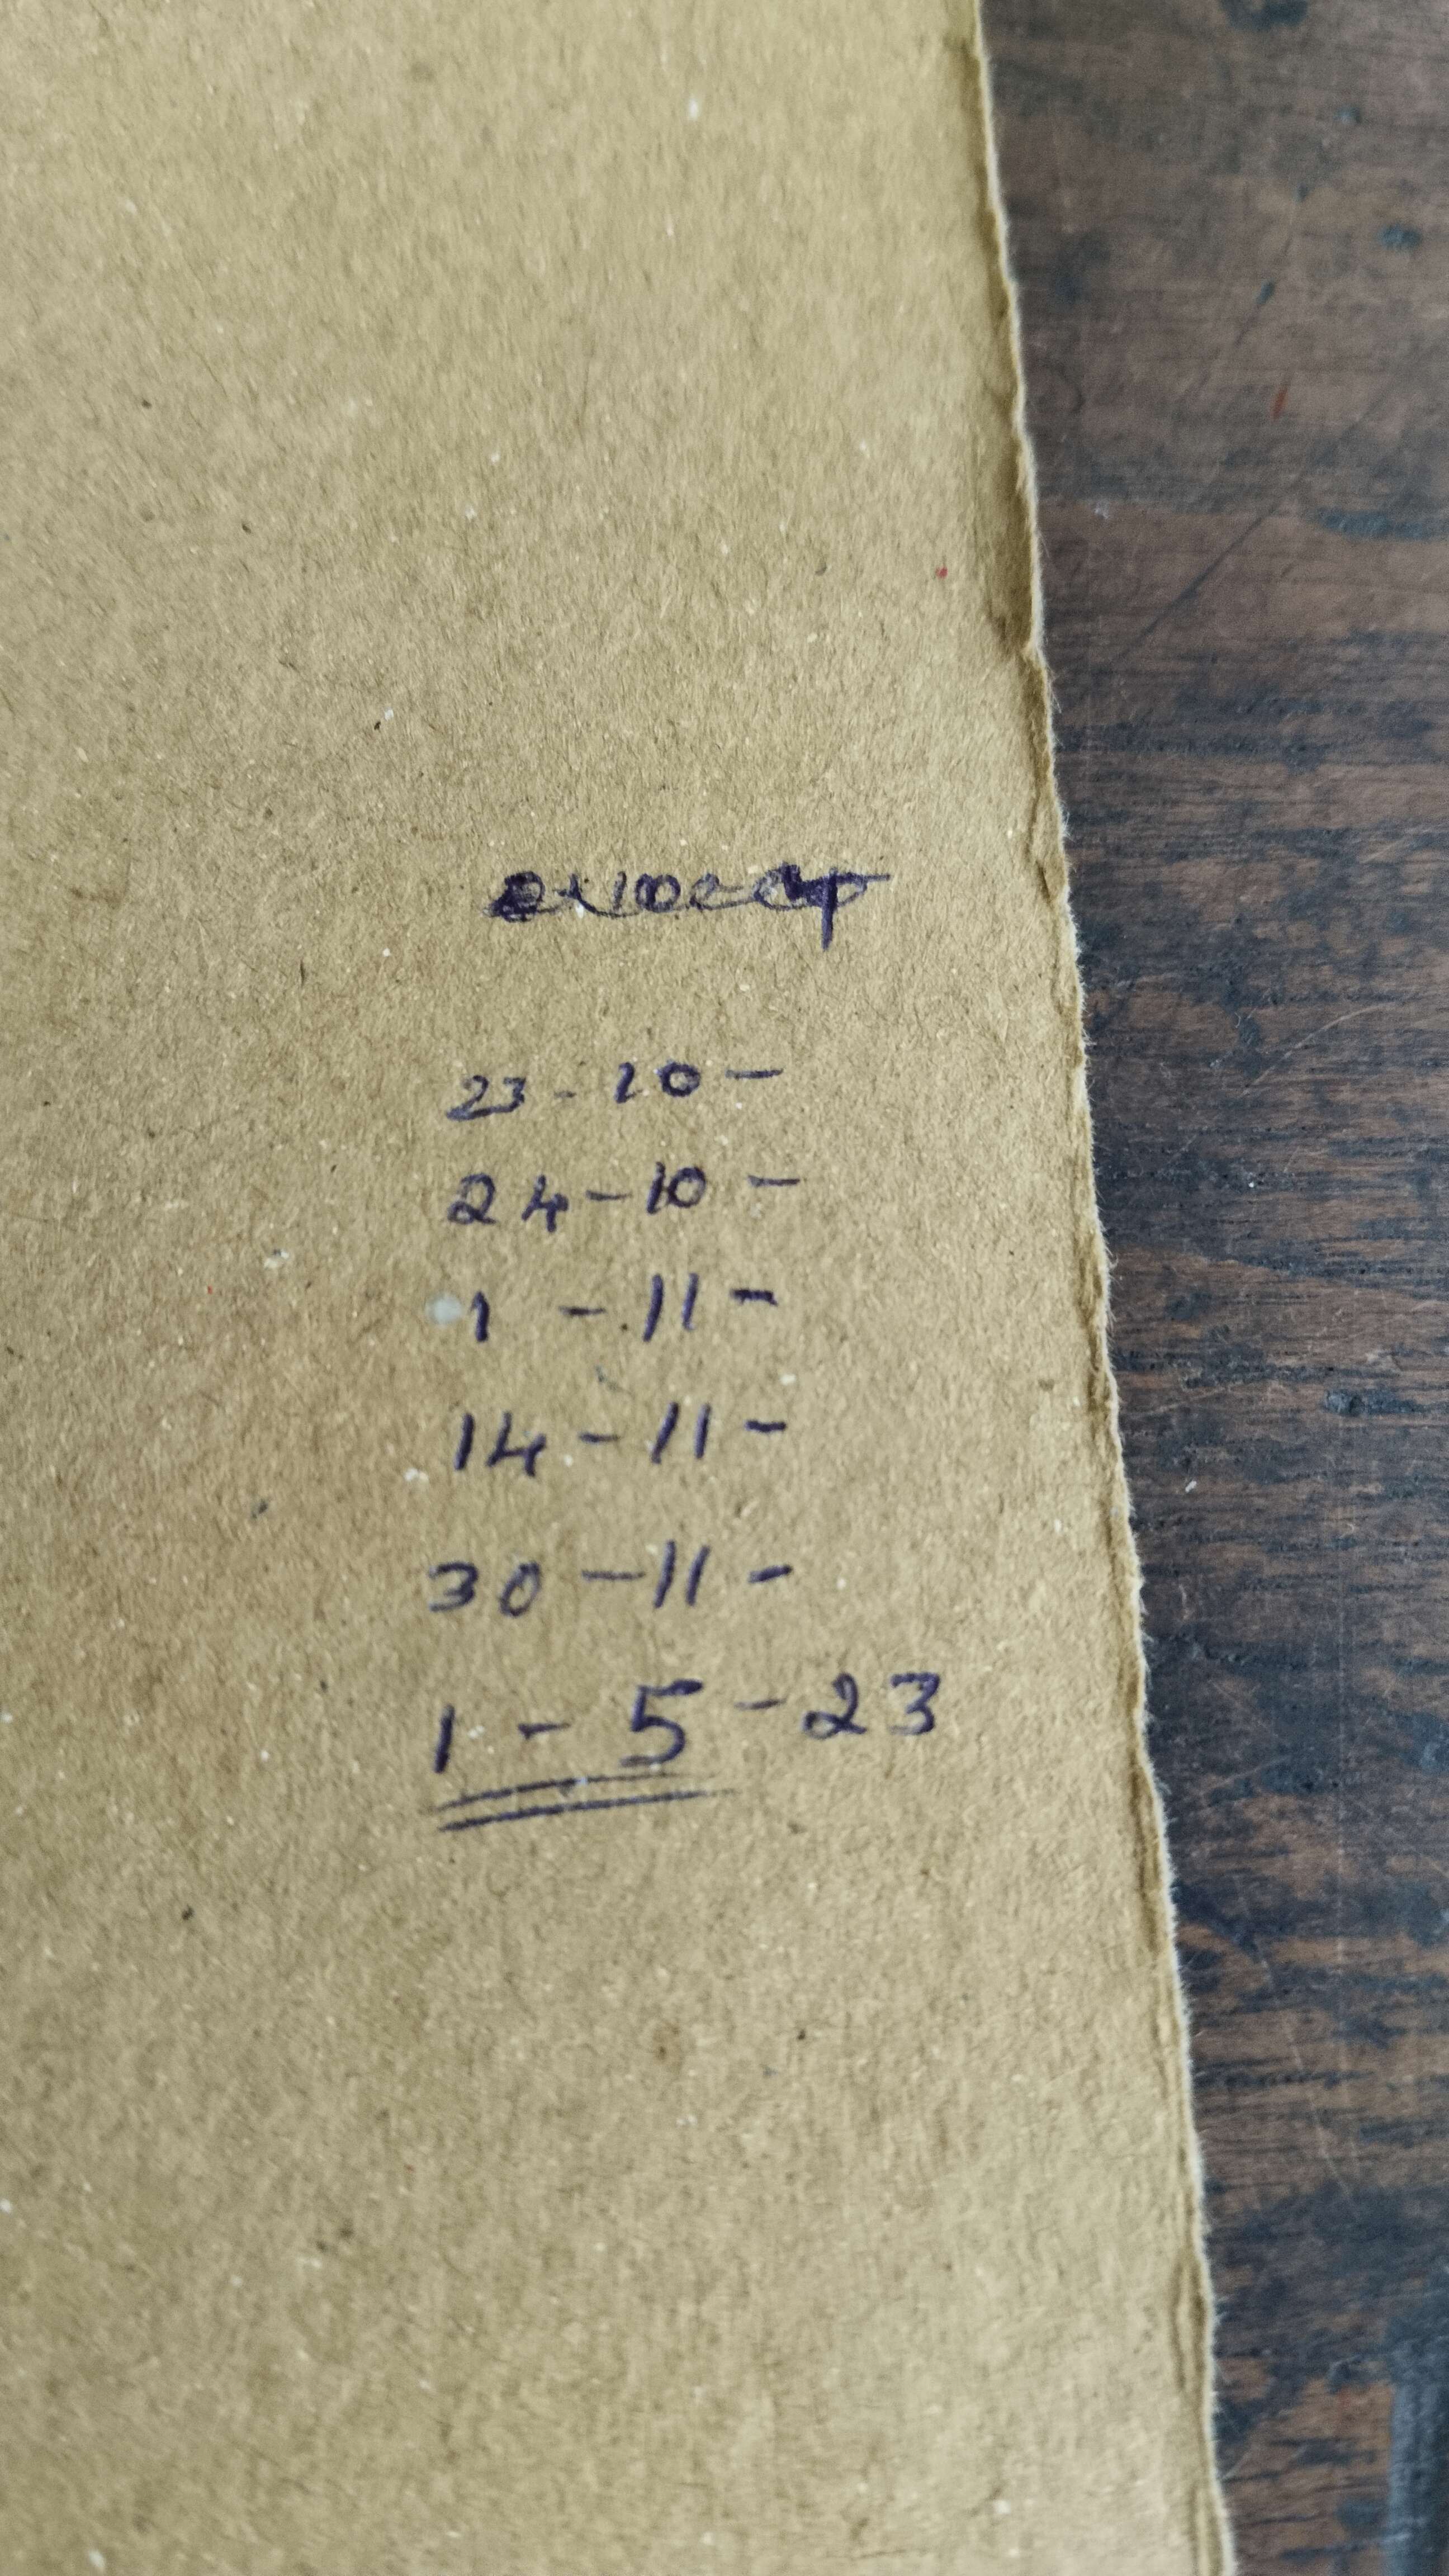 23 - 10 -
24 - 10 -
1 - 11 -
14 - 11 -
30 - 11 -
1 - 5 - 23